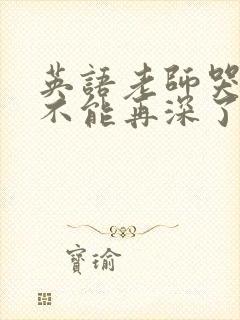 英語老師哭
不能再深了
寶瑜